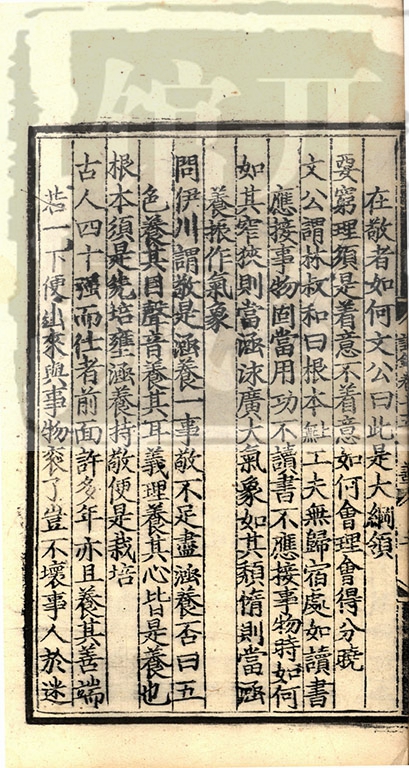 在敬者如何文公曰此是大綱領
要窮理須是着意不着意如何會理會得分曉
文公謂林叔和曰根本上無工夫無歸宿處如讀書
應接事物固當用功不讀書不應接事物時如何
如其窄狹則當涵泳廣大氣象如其頹惰則當涵
養振作氣象
問伊川謂敬是涵養一事敬不足盡涵養否曰五
色養其目聲音養其耳義理養其心皆是養也
根本須是先培壅涵養持敬便是栽培
古人四十強而仕者前面許多年亦且養其善端
若一下便出來與事物衮了豈不壞事人於迷